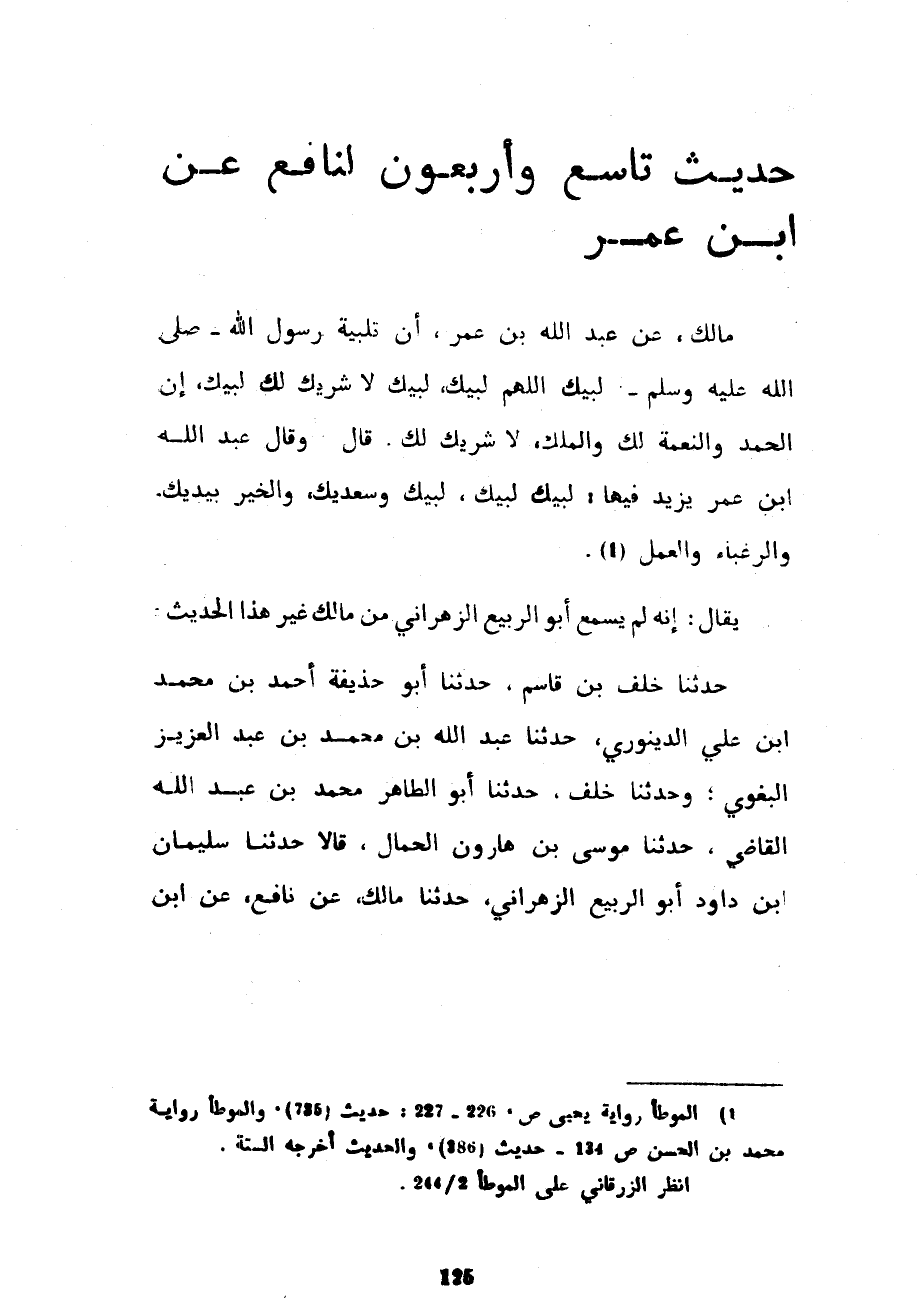 حديث تاسع وأربعون لنافع عن
ابن عمر
مالك ، عن عبد الله بن عمر ، أن تلبية رسول الله - صلى
الله عليه وسلم - لبيك اللهم لبيك، لبيك لا شريك لك لبيك، إن
الحمد والنعمة لك والملك، لا شريك لك . قال وقال عبد الله
ابن عمر يزيد فيها : لبيك لبيك ، لبيك وسعديك، والخير بيديك.
والرغباء والعمل (1) .
يقال : إنه لم يسمع أبو الربيع الزهراني من مالك غير هذا الحديث :
حدثنا خلف بن قاسم ، حدثنا أبو حذيفة أحمد بن محمد
ابن علي الدينوري، حدثنا عبد الله بن محمد بن عبد العزيز
البغوي ؛ وحدثنا خلف ، حدثنا أبو الطاهر محمد بن عبد الله
القاضي ، حدثنا موسى بن هارون الحمال ، قالا حدثنا سليمان
ابن داود أبو الربيع الزهراني، حدثنا مالك، عن نافع، عن ابن
1) الموطأ رواية يحيى ص 226 - 227 : حديث (735) والموطأ رواية
محمد بن الحسن ص 134 - حديث (386) والحديث أخرجه الستة .
انظر الزرقاني على الموطأ 244/2 .
125